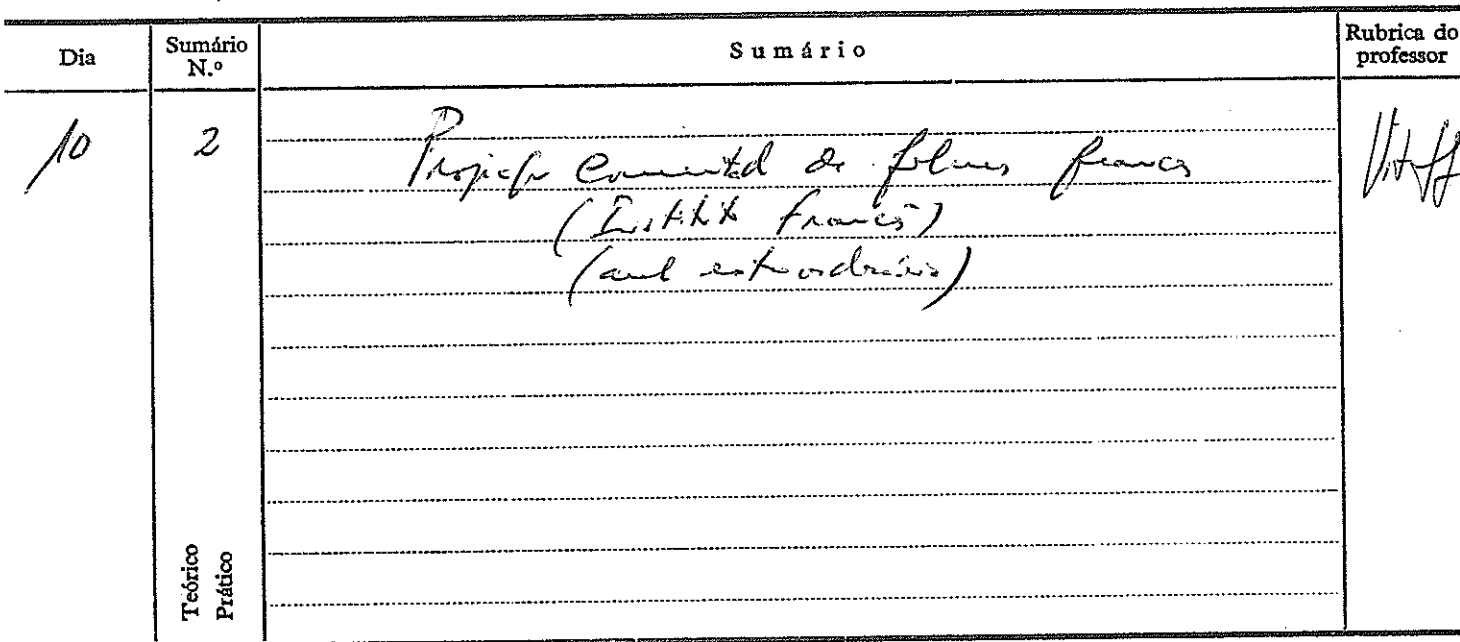 Dia
Sumário N.º
Sumário
Rubrica do professor
10
2
Projecção Comentada de filmes francês
(Instituto Francês)
(aula extraordinária)
Teórico
Prático